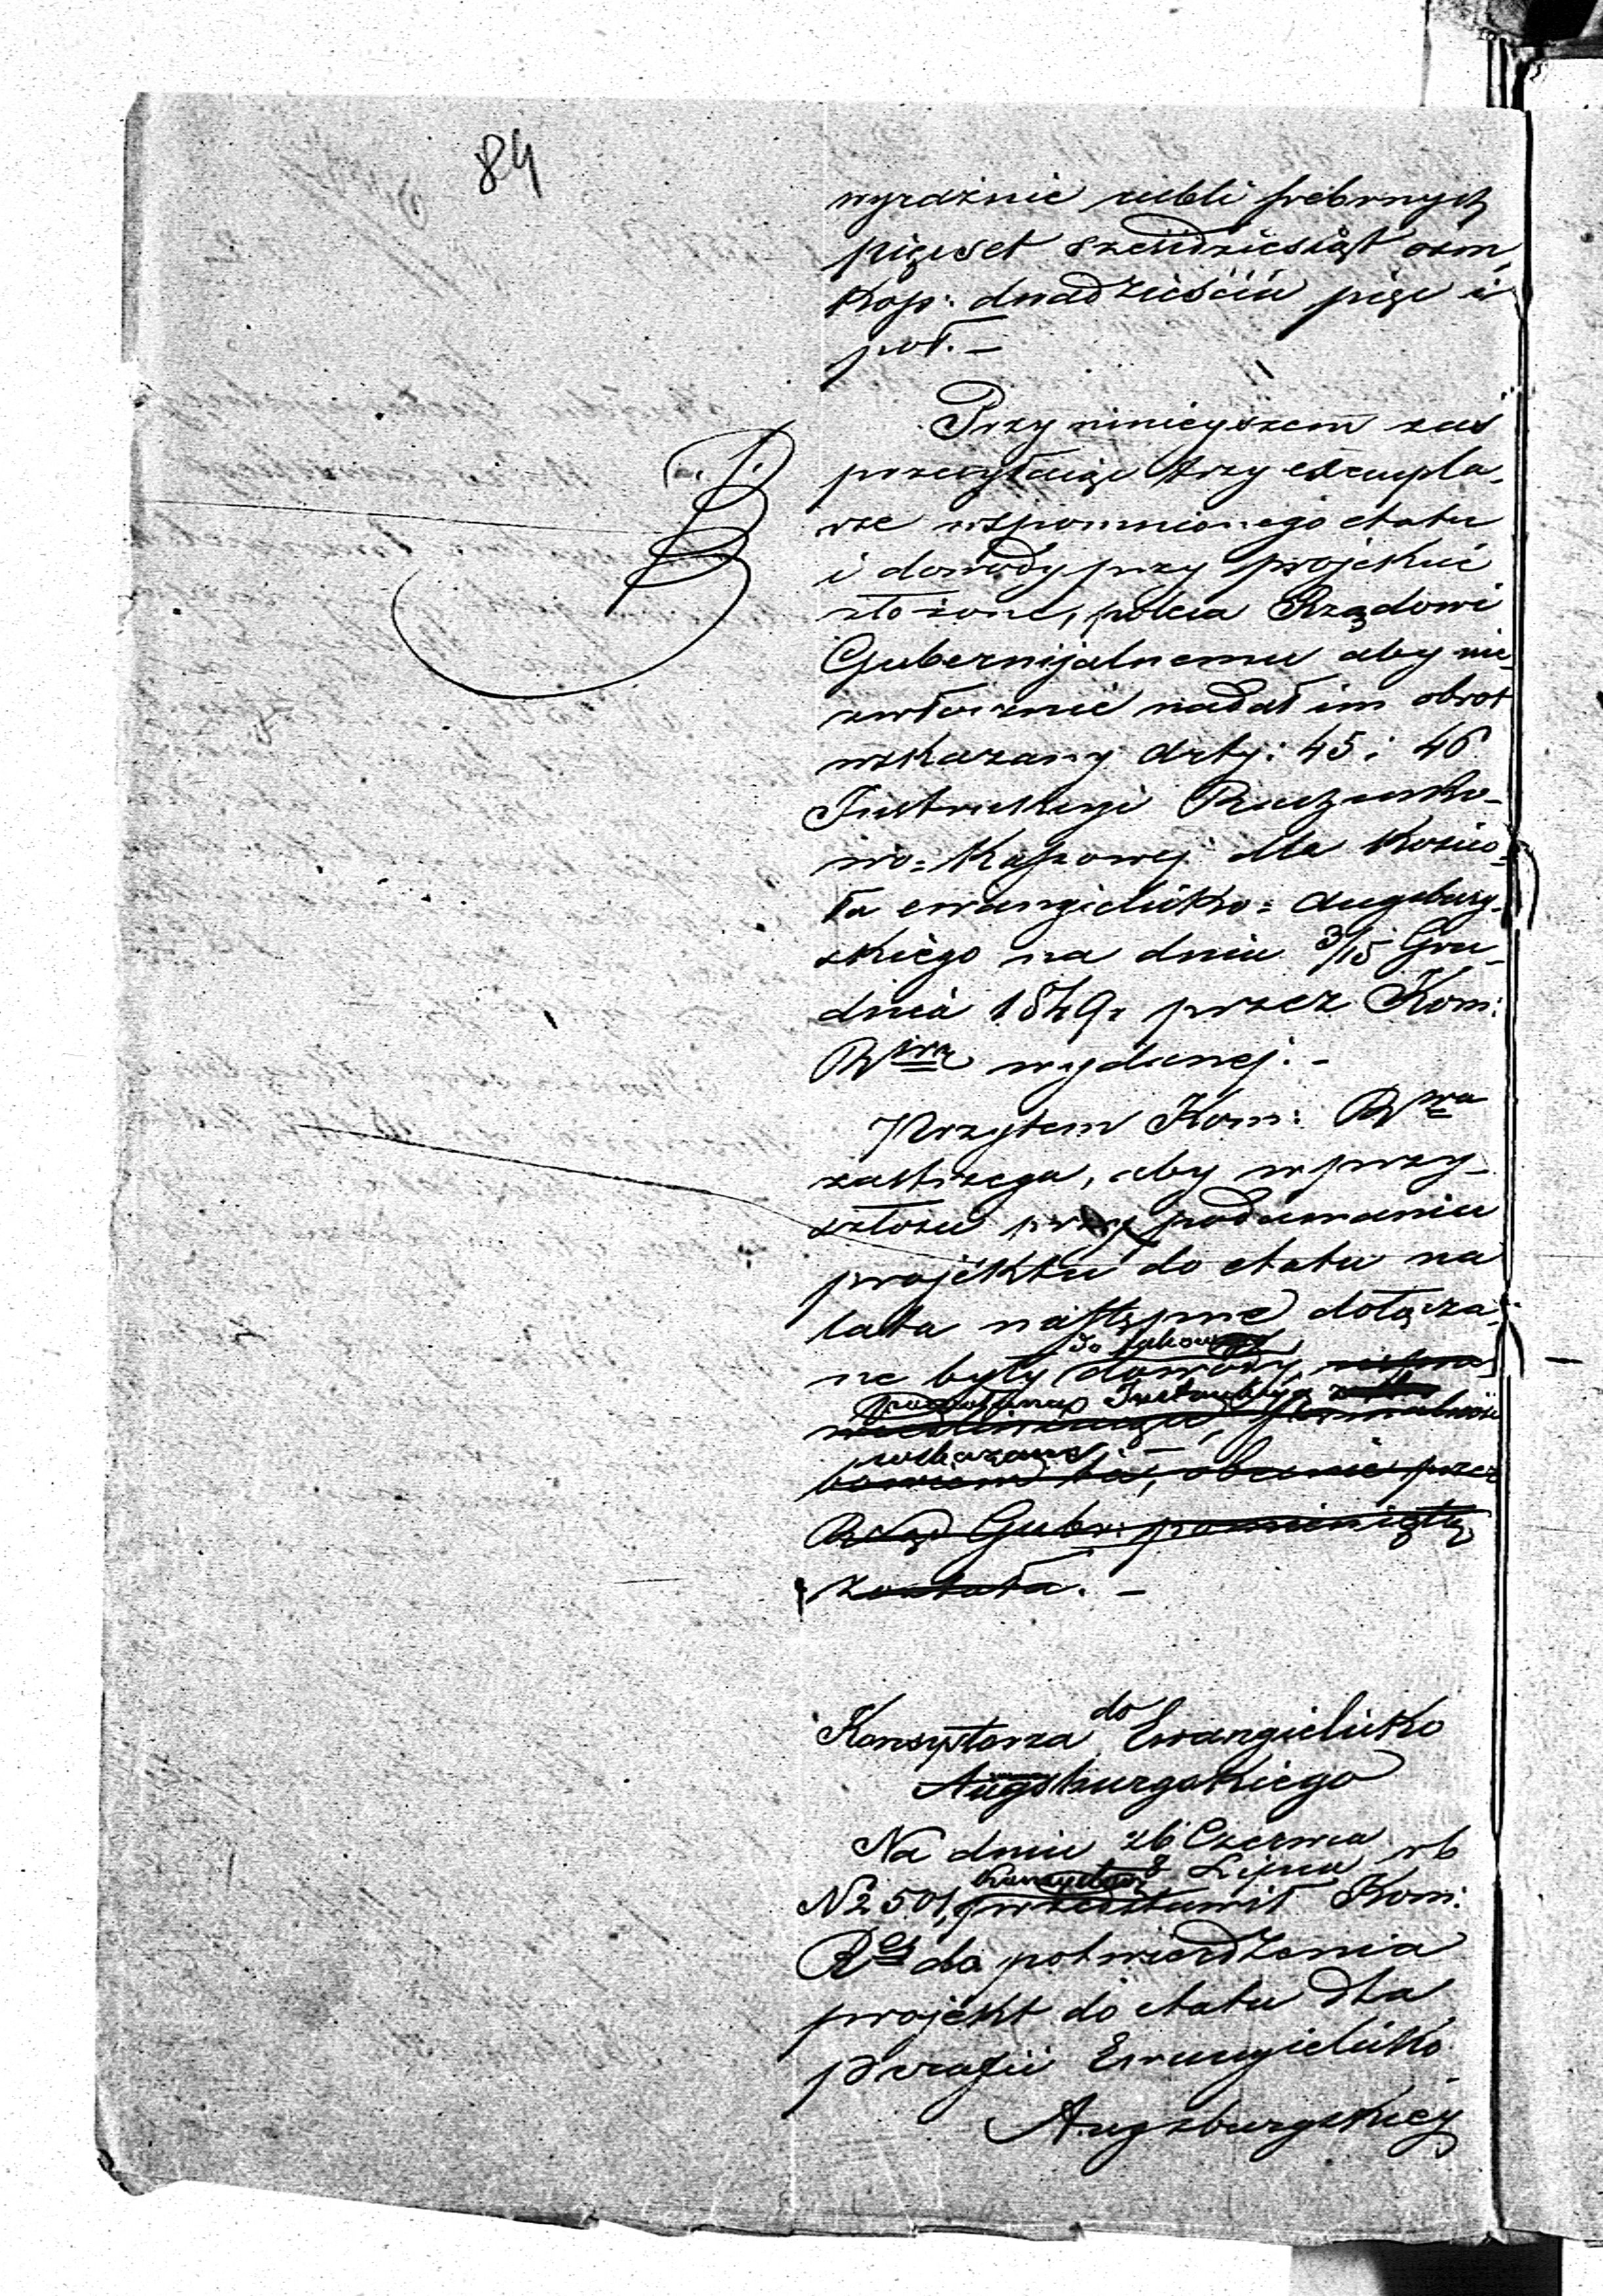 84
wyraźnie rubli srebrnych
pięćset sześćdziesiąt ośm,
kop: dwadzieścia pięć i
pół. —
Przy ninieyszem zaś
przesyłaiąc trzy exempla-
rze wspomnionego etatu
i dowody przy projekcie
złożone, poleca Rządowi
Gubernijalnemu aby nie-
zwłocznie nadał im obrot
wskazany arty: 45 i 46
Instrukcyi Rachunko-
wo=Kassowej dla Kościo-
ła ewangielicko=augsburg-
skiego na dniu 3/15 Gru-
dnia 1849 r przez Kom:
Rwa wydanej. —
Przytem Kom: Rwa
zastrzega, aby w przy-
szłości przy podawaniu
projektu do etatu na
lata następne dołącza-
do takowego
ne były dowody
powołaną Instrukcyą
wskazane. —
bowiem ta, obecnie przez
Rząd Gubr: pominiętą
została. —
do
Konsystorza Ewangielicko
Augsburgskiego
Na dniu 26 Czerwca rb
8 Lipca
Konsystorz
N 2501, przedstawił Kom:
R do potwierdzenia
projekt do etatu dla
parafii Ewangielicko
Augsburgskiey